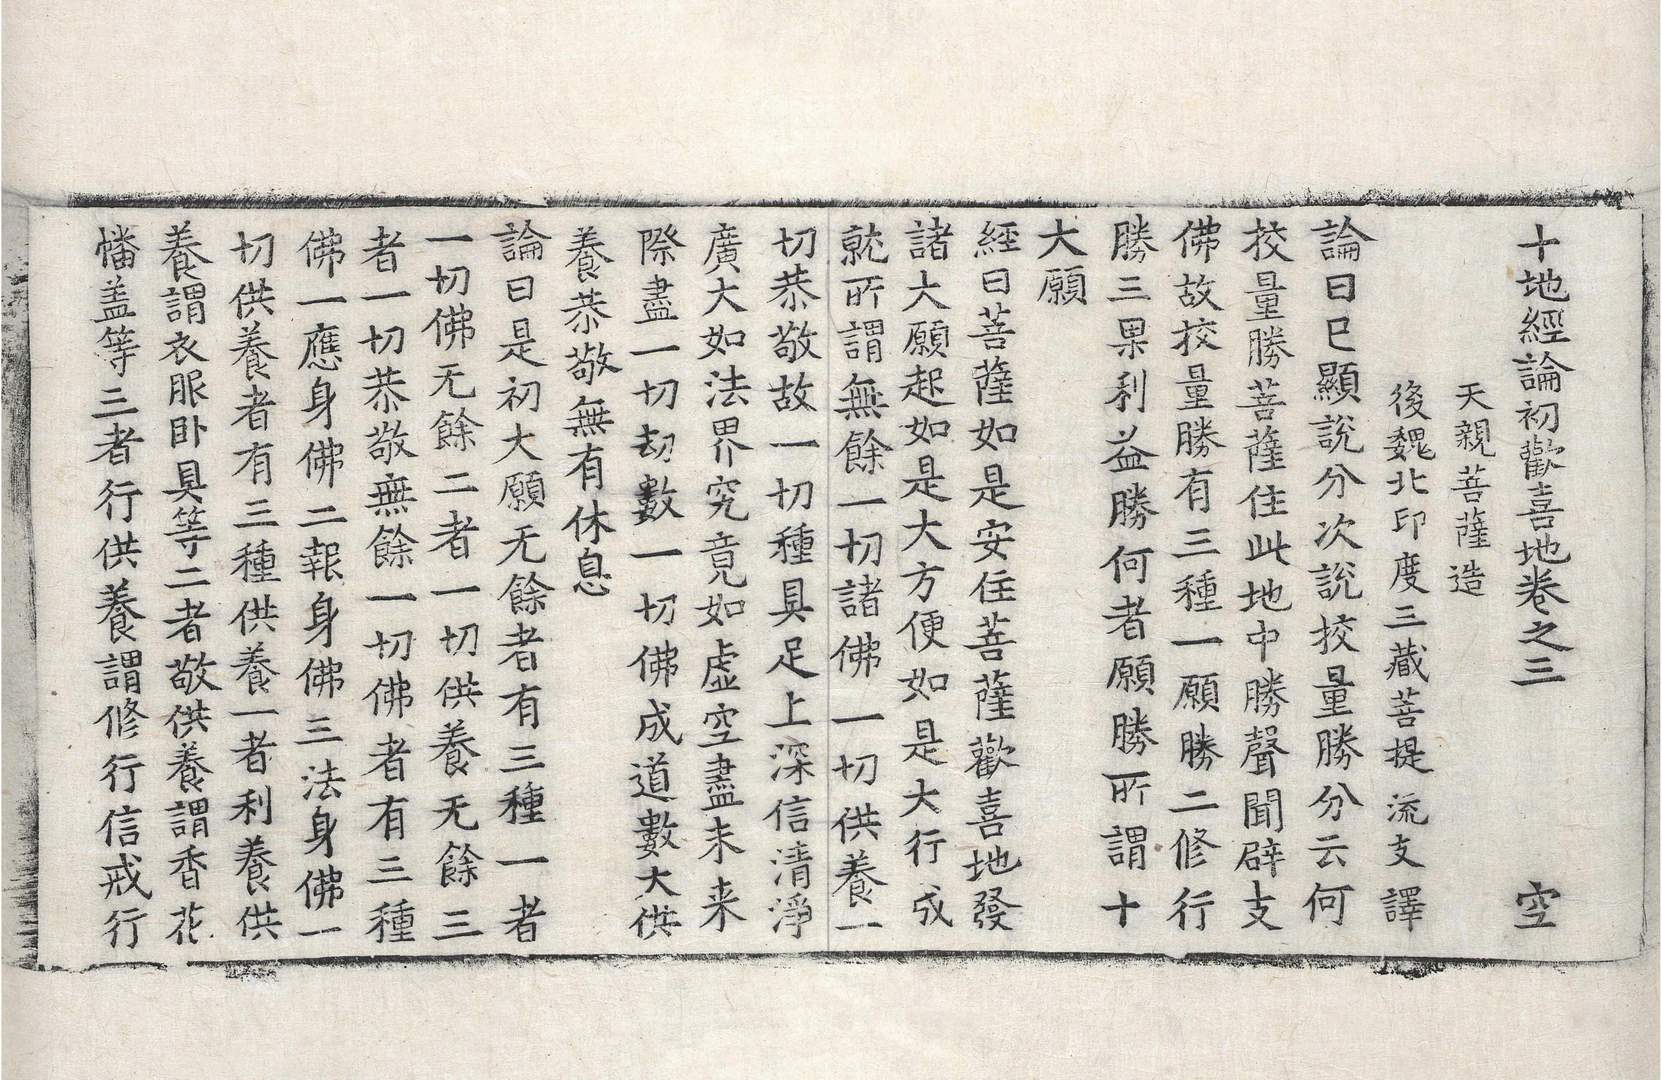 十地經論初歡喜地卷之三 空
天親菩薩造
後魏北印度三藏菩提流支譯
論曰巳顯說分次說挍量勝分云何
挍量勝菩薩住此地中勝聲聞辟支
佛故挍量勝有三種一願勝二修行
勝三果利益勝何者願勝所謂十
大願
經曰菩薩如是安住菩薩歡喜地發
諸大願起如是大方便如是大行成
就所謂無餘一切諸佛一切供養一
切恭敬故一切種具足上深信清淨
廣大如法界究竟如虛空盡未来
際盡一切劫數一切佛成道數大供
養恭敬無有休息
論曰是初大願无餘者有三種一者
一切佛无餘二者一切供養无餘三
者一切恭敬無餘一切佛者有三種
佛一應身佛二報身佛三法身佛一
切供養者有三種供養一者利養供
養謂衣服卧具等二者敬供養謂香花
幡盖等三者行供養謂修行信戒行